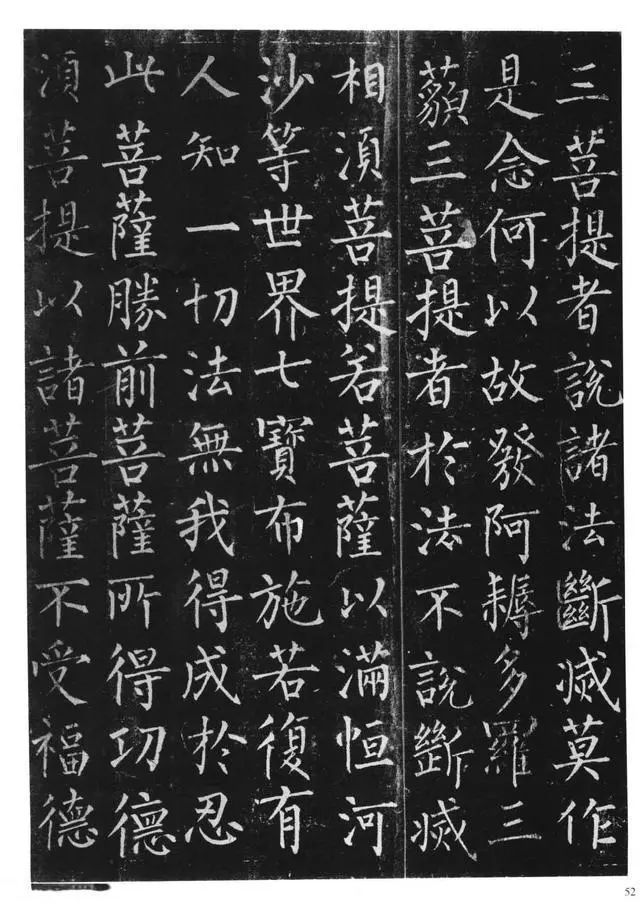 三菩提者說諸法斷滅莫作
是念何以故發阿耨多羅三
藐三菩提者於法不說斷滅
相須菩提若菩薩以滿恒河
沙等世界七寶布施若復有
人知一切法無我得成於忍
此菩薩勝前菩薩所得功德
須菩提以諸菩薩不受福德
52